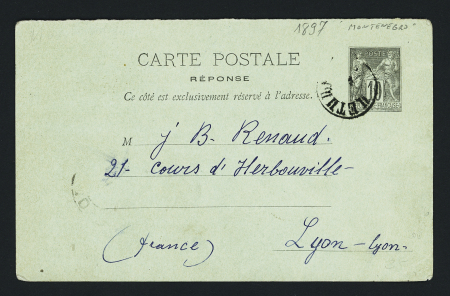 1897 "MONTENEGRO"
CARTE POSTALE
RÉPONSE
Ce côté est exclusivement réservé à l'adresse.
POSTE
10
M J B- Renaud.
21- cours d'Herbouville-
(france) Lyon-Lyon-